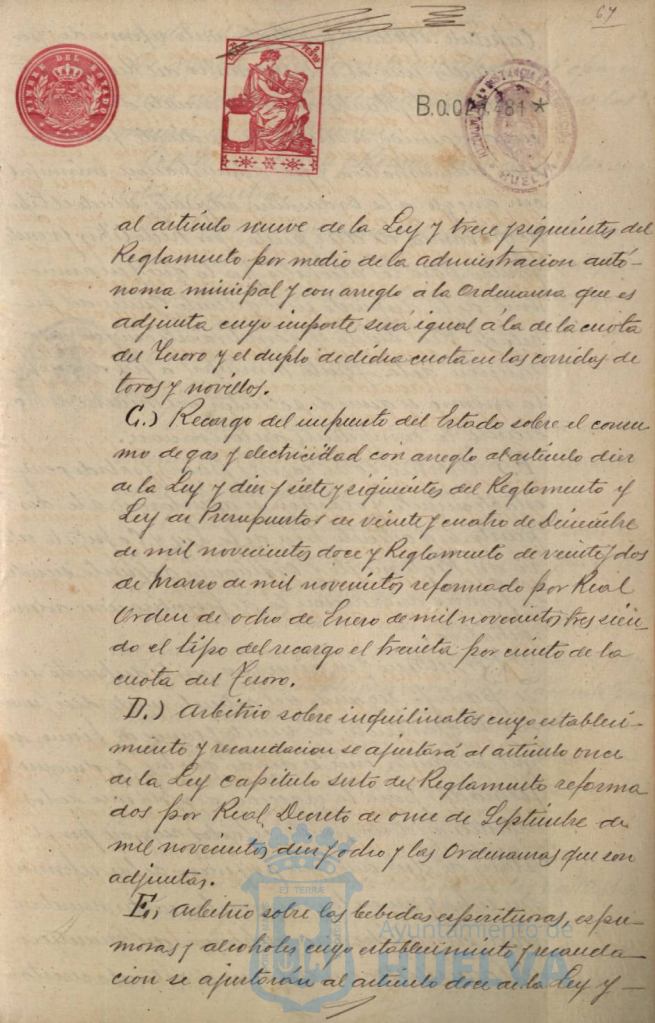 67
TIMBRE DEL ESTADO
B.0.0 .481 *
HUELVA
al artículo nueve de la Ley y trece y siguientes del
Reglamento por medio de la administracion autó-
noma municipal y con arreglo á la Ordenanza que es
adjunta cuyo importe será igual á la de la cuota
del Tesoro y el duplo de dicha cuota en las corridas de
toros y novillos.
C.) Recargo del impuesto del Estado sobre el consu-
mo de gas y electricidad con arreglo al artículo diez
de la Ley y diez y siete y siguientes del Reglamento y
Ley de Presupuestos de veinte y cuatro de Diciembre
de mil novecientos doce y Reglamento de veinte y dos
de Marzo de mil novecientos reformado por Real
Orden de ocho de Enero de mil novecientos tres sien-
do el tipo del recargo el treinta por ciento de la
cuota del Tesoro.
D.) Arbitrio sobre inquilinatos cuyo estableci-
miento y recaudacion se ajustará al artículo once
de la Ley capitulo sesto del Reglamento reforma
dos por Real Decreto de once de Septiembre de
mil novecientos diez y ocho y las Ordenanzas que son
adjuntas.
E.) Arbitrio sobre las bebidas espirituosas, espu-
mosas y alcoholes cuyo establecimiento y recauda-
cion se ajustarán al artículo doce de la Ley y
Ayuntamiento de
HUELVA